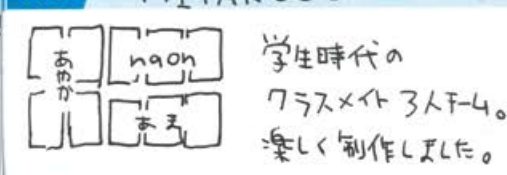 あやか
naon
あき
学生時代の
クラスメイト3人チーム。
楽しく制作しました。